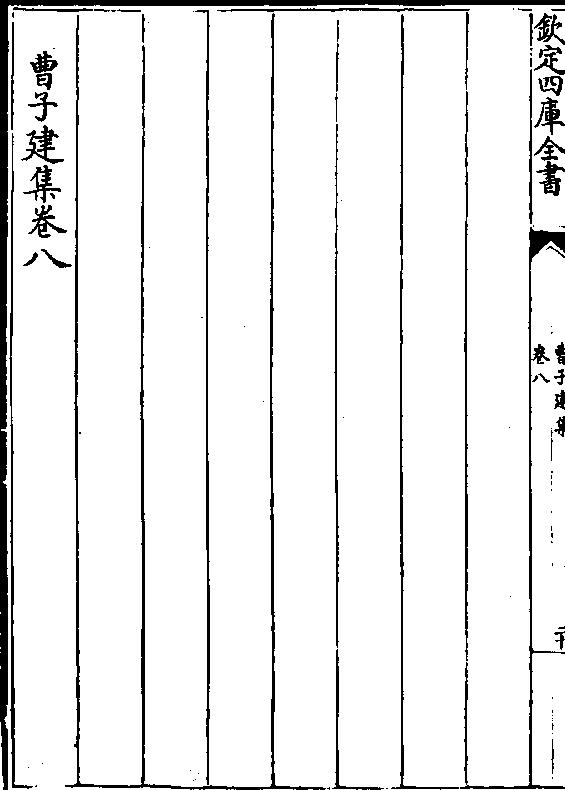 欽定四庫全書
曹子建集
卷八
曹子建集卷八